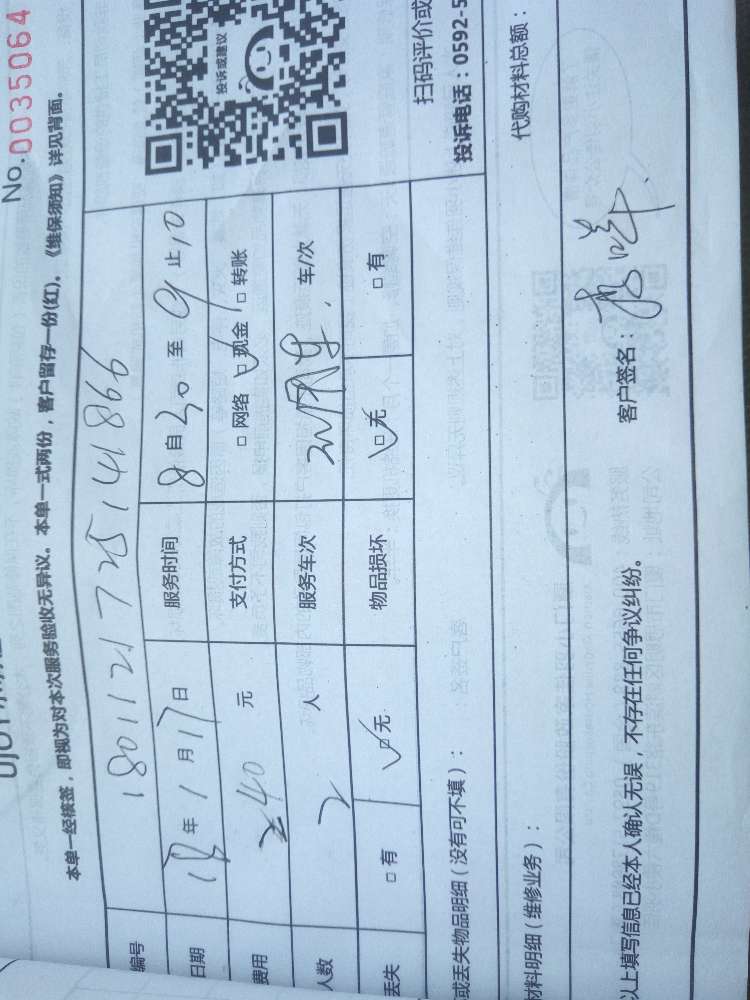 No.0035064
本单一经核签，即视为对本次服务验收无异议。本单一式两份，客户留存一份(红)。《维保须知》详见背面。
编号 180112172514186
日期 18年1月17日 服务时间 8自30至9止10
费用 240元 支付方式 □网络 □现金 □转账
人数 2人 服务车次 车/次
丢失 □有 □无 物品损坏 □无 □有
投诉或建议
扫码评价或
投诉电话：0592-5
或丢失物品明细（没有可不填）：
材料明细（维修业务）：
代购材料总额：
以上填写信息已经本人确认无误，不存在任何争议纠纷。
客户签名：